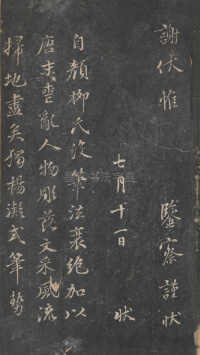 謝伏惟　鑒察謹狀
七月十一日　狀
自顏柳氏沒筆法衰絕加以
唐末喪亂人物彫落文采風流
掃地盡矣獨楊凝式筆勢